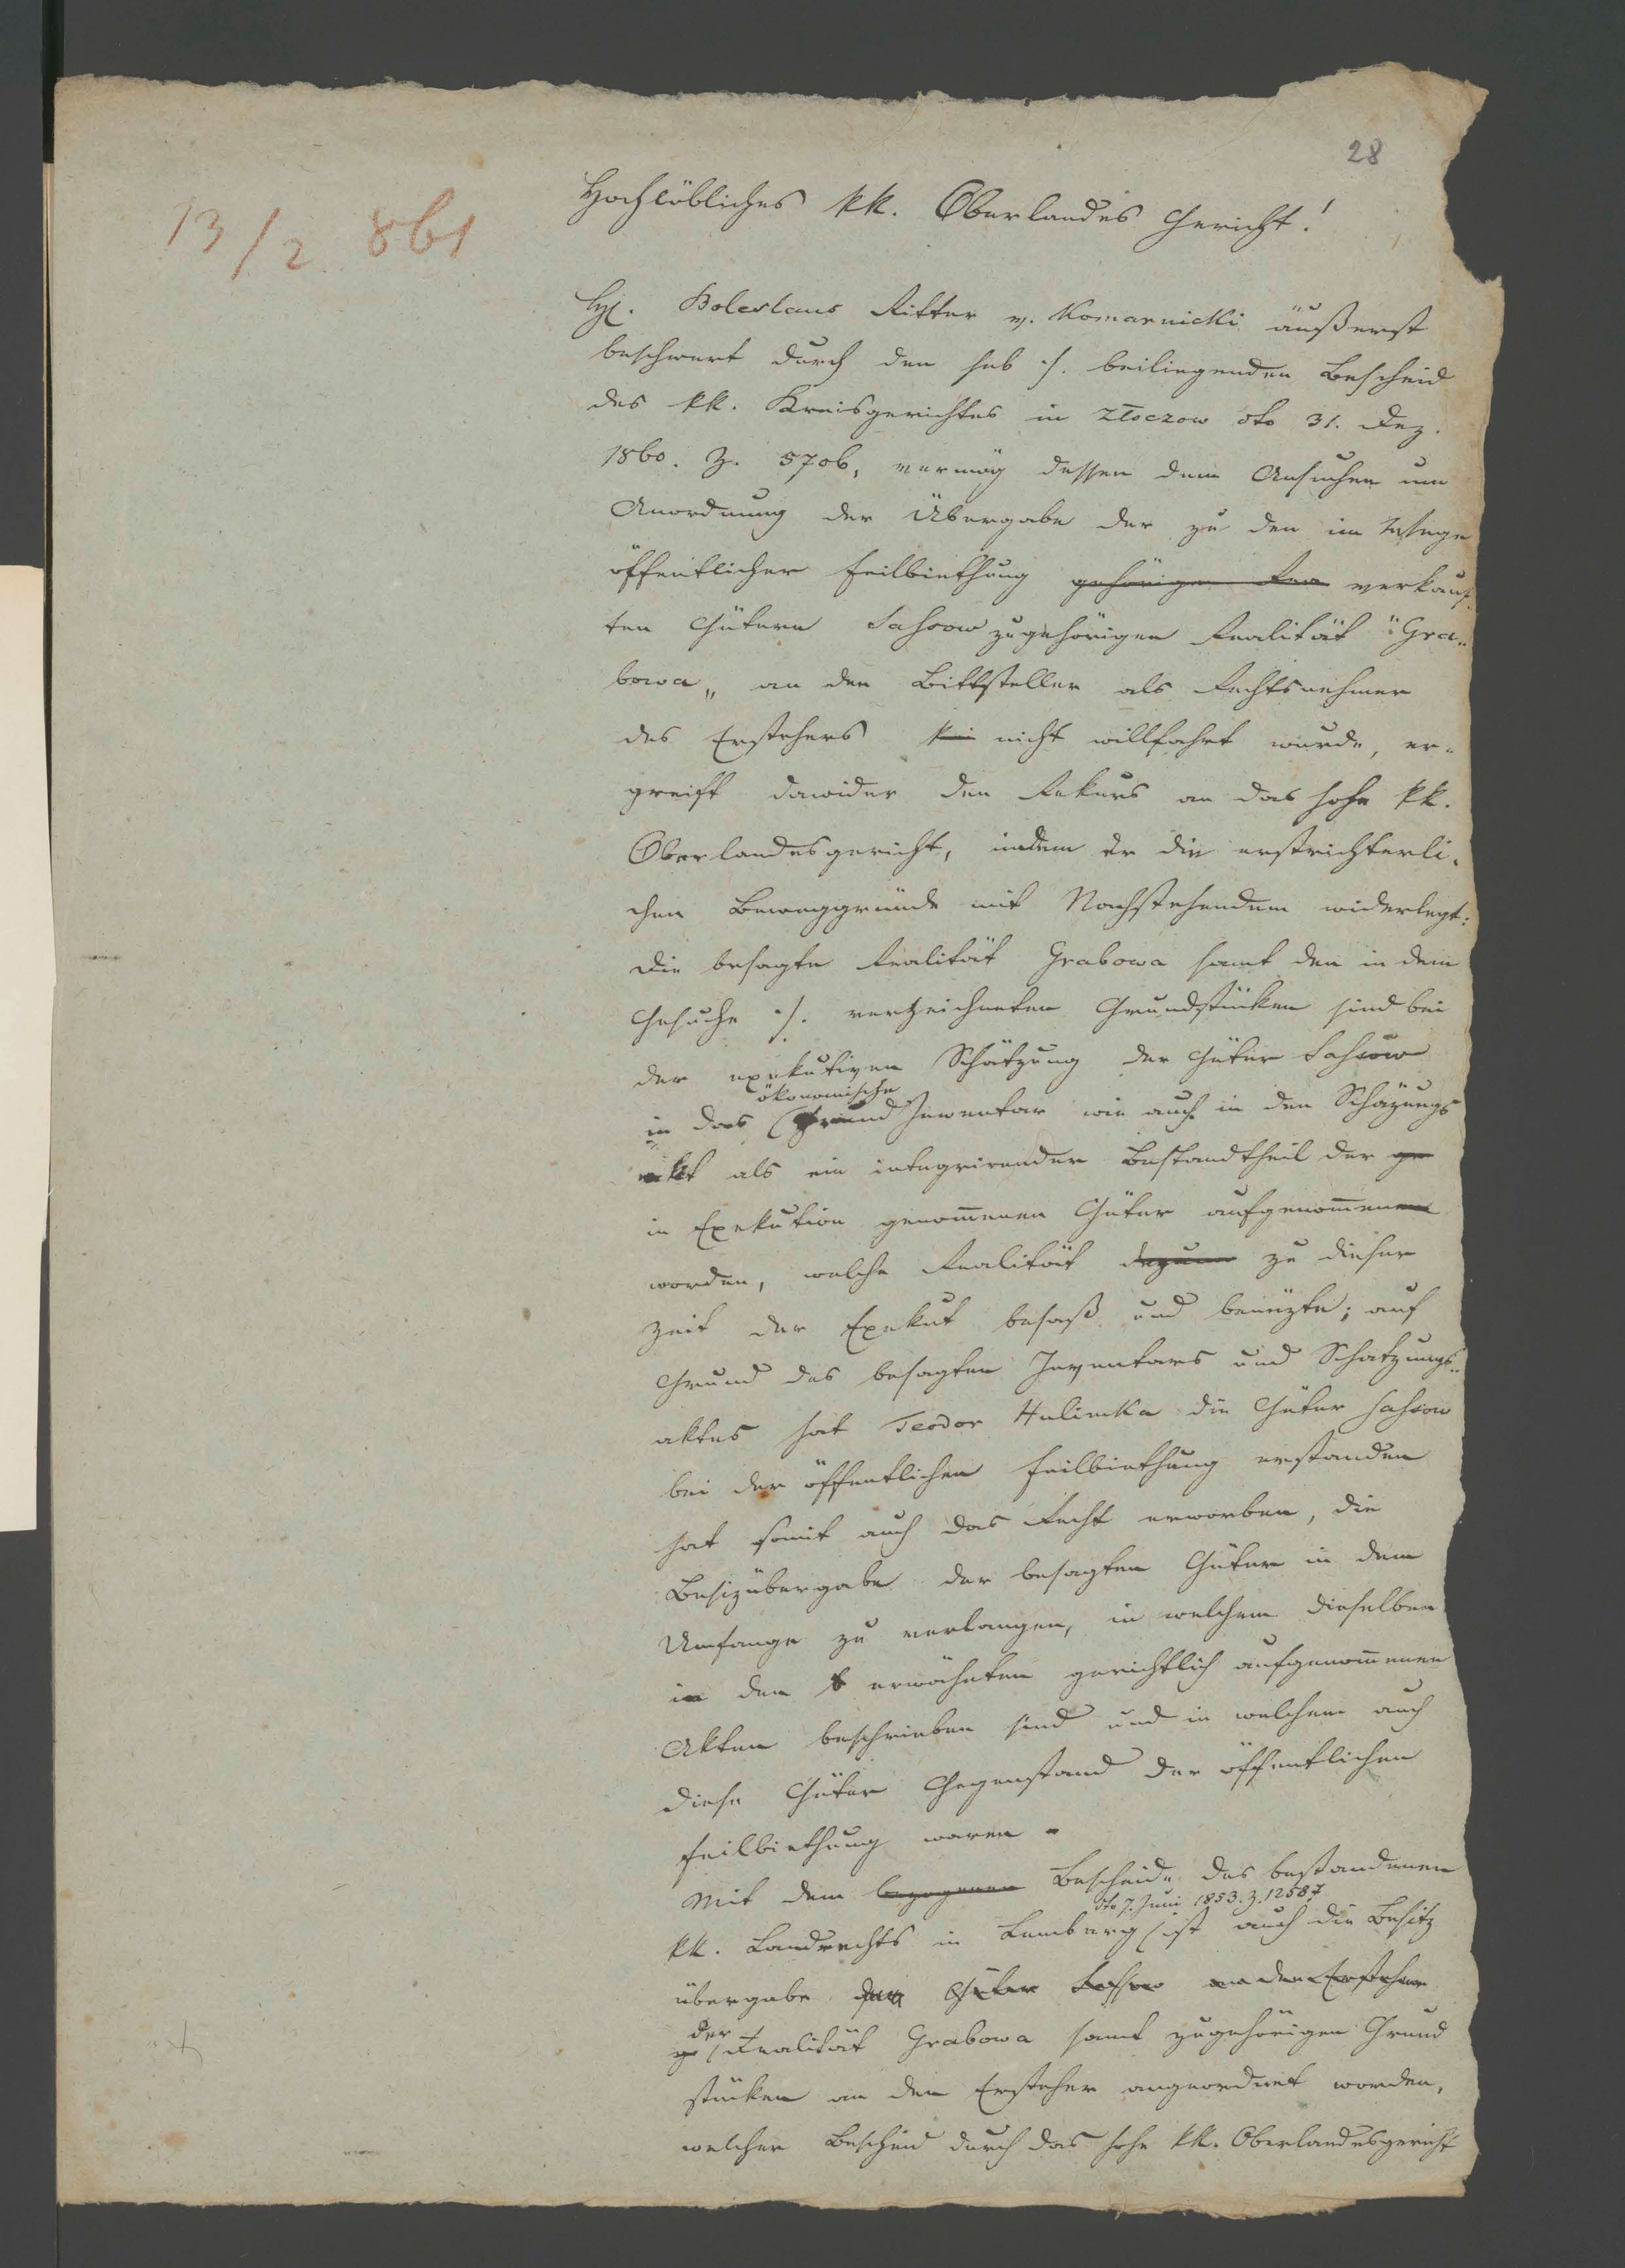 28
13/2 861
Hochlöbliches kk. Oberlandes Gericht!
Boleslaus Ritter v. Komarnicki äußerst
beschwert durch den sub ·/. beiliegenden Bescheid
des kk. Kreisgerichtes in Złoczow dto 31. Dez.
1860. Z. 5706, vermög dessen dem Ansuchen um
Anordnung der Übergabe der zu den im Wege
öffentlicher Feilbiethung gehörigen Rea verkauf-
ten Gütern Sassow zugehörigen Realität "Gra-
bowa" an den Bittsteller als Rechtsnehmer
des Erstehers nicht willfahrt wurde, er-
greift dawider den Rekurs an das hohe kk.
Oberlandesgericht, indem er die erstrichterli-
chen Beweggründe mit Nachstehendem widerlegt:
Die besagte Realität Grabowa samt den in dem
Gesuche ·/. verzeichneten Grundstücken sind bei
der exekutiven Schätzung der Güter Sassow
ökonomische
in das Grund Inventar wie auch in den Schäzungs
akt als ein integrirender Bestandtheil der ge
in Exekution genommenen Güter aufgenommen
worden, welche Realität dazum zu dieser
Zeit der Exekut besaß und benüzte; auf
Grund des besagten Inventars und Schatzungs-
aktes hat Teodor Hulimka die Güter Sassow
bei der öffentlichen Feilbiethung erstanden
hat somit auch das Recht erworben, die
Besizübergabe der besagten Güter in dem
Umfange zu verlangen, in welchem dieselben
in den b erwähnten gerichtlich aufgenommenen
Akten beschrieben sind und in welchem auch
diese Güter Gegenstand der öffentlichen
Feilbiethung waren.
Mit dem bezogenen Bescheide des bestandenen
dto 7. Juni 1853. Z. 12587
kk. Landrechts in Lemberg ist auch die Besitz
übergabe Güter Sassow an den Ersteher
der
ge Realität Grabowa samt zugehörigen Grund
stücken an den Ersteher angeordnet worden,
welcher Bescheid durch das hohe kk. Oberlandesgericht